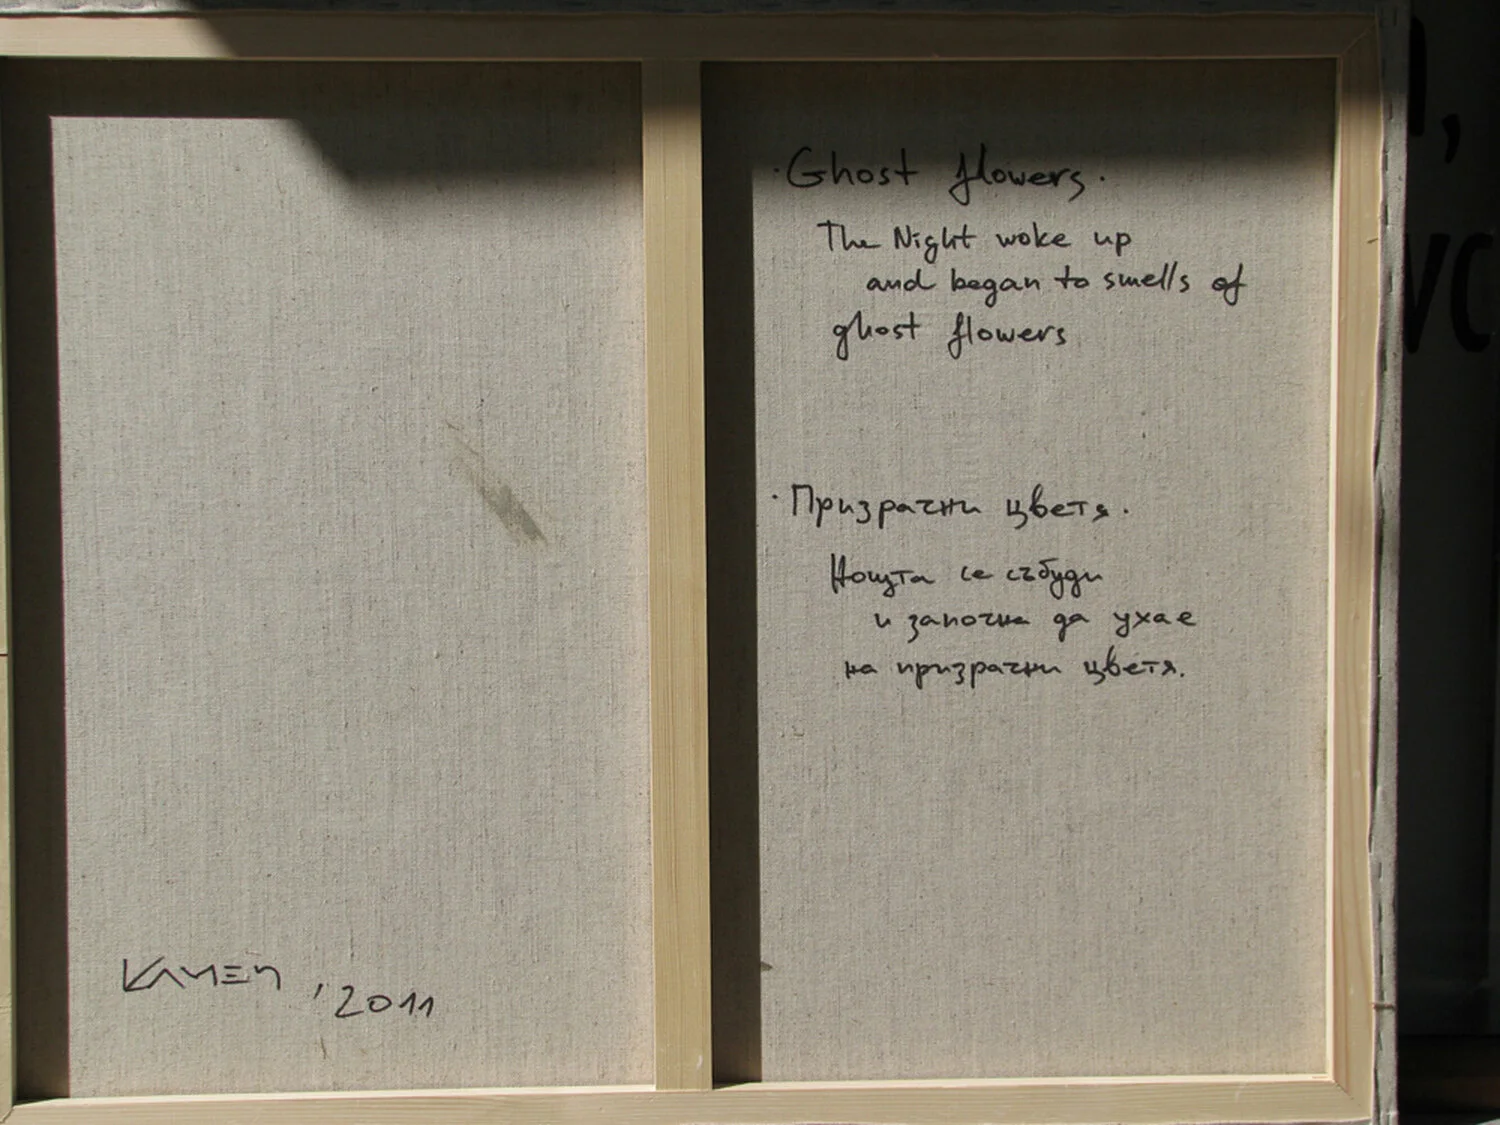 · Ghost flowers.
The Night woke up
and began to smells of
ghost flowers
· Призрачни цветя.
Нощта се събуди
и започна да ухае
на призрачни цветя.
KAMEN, 2011